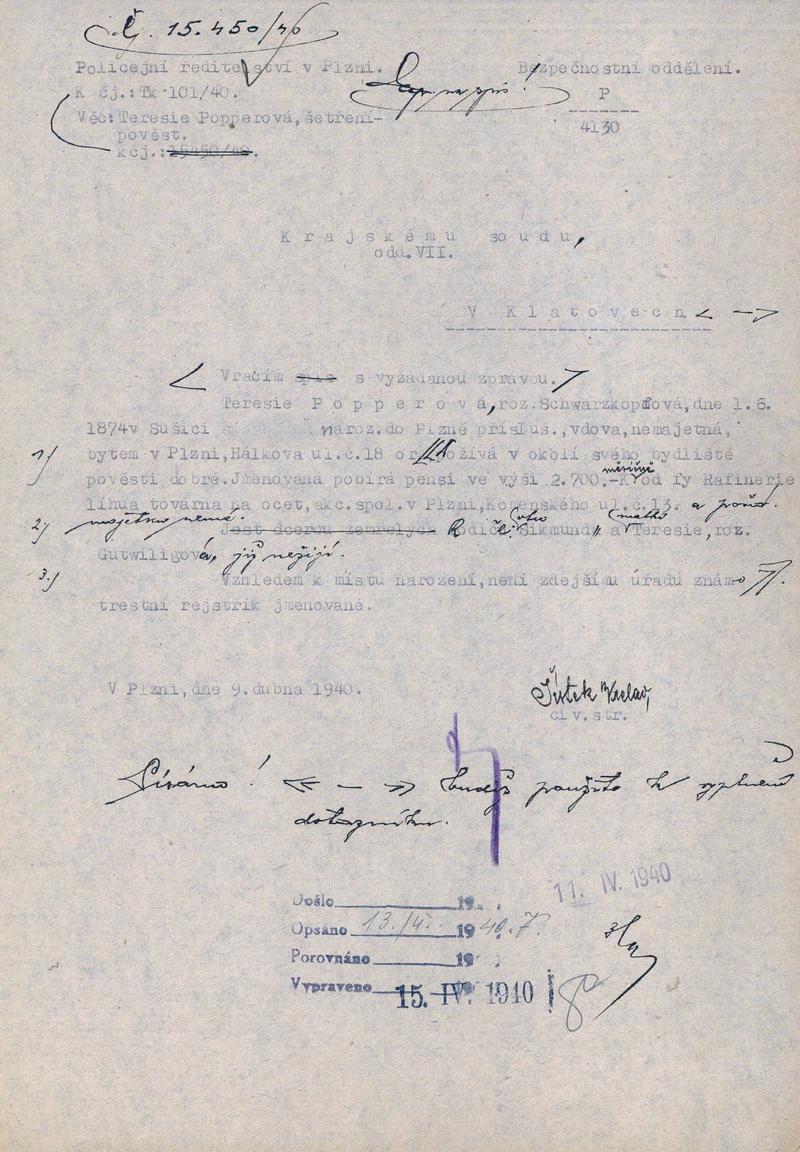 Čj. 15.450/40
Policejní ředitelství v Plzni. Bezpečnostní oddělení.
K čj.:Tk 101/40. P
Věc:Teresie Popperová,šetření- 4130
pověst.
kčj.:15450/40.
Krajskému soudu,
odd.VII.
V Klatovech
Vracím spis s vyžádanou zprávou.
Teresie Popperová,roz.Schwarzkopfová,dne 1.6.
1874v Sušici naroz.do Plzně přísluš.,vdova,nemajetná,
1) bytem v Plzni,Hálkova ul.č.18 požívá v okolí svého bydliště
pověsti dobré.Jmenovaná pobírá pensi ve výši 2.700.-K měsíčně od fy Rafinerie
lihu a továrna na ocet,akc.spol.v Plzni,Komenského ul.č.13. a
2) majetku nemá. Jest dcerou zemřelých Rodiče: otec Sikmund a matka Teresie,roz.
Gutwiligová, již nežijí.
3.) Vzhledem k místu narození,není zdejšímu úřadu známo
trestní rejstřík jmenované.
V Plzni,dne 9.dubna 1940.
civ.str.
Písárno! budiž použito k vyplnění
dotazníku.
11. IV. 1940
Došlo 19
Opsáno 13./4. 1940.
Porovnáno 19
Vypraveno 15. IV. 1940